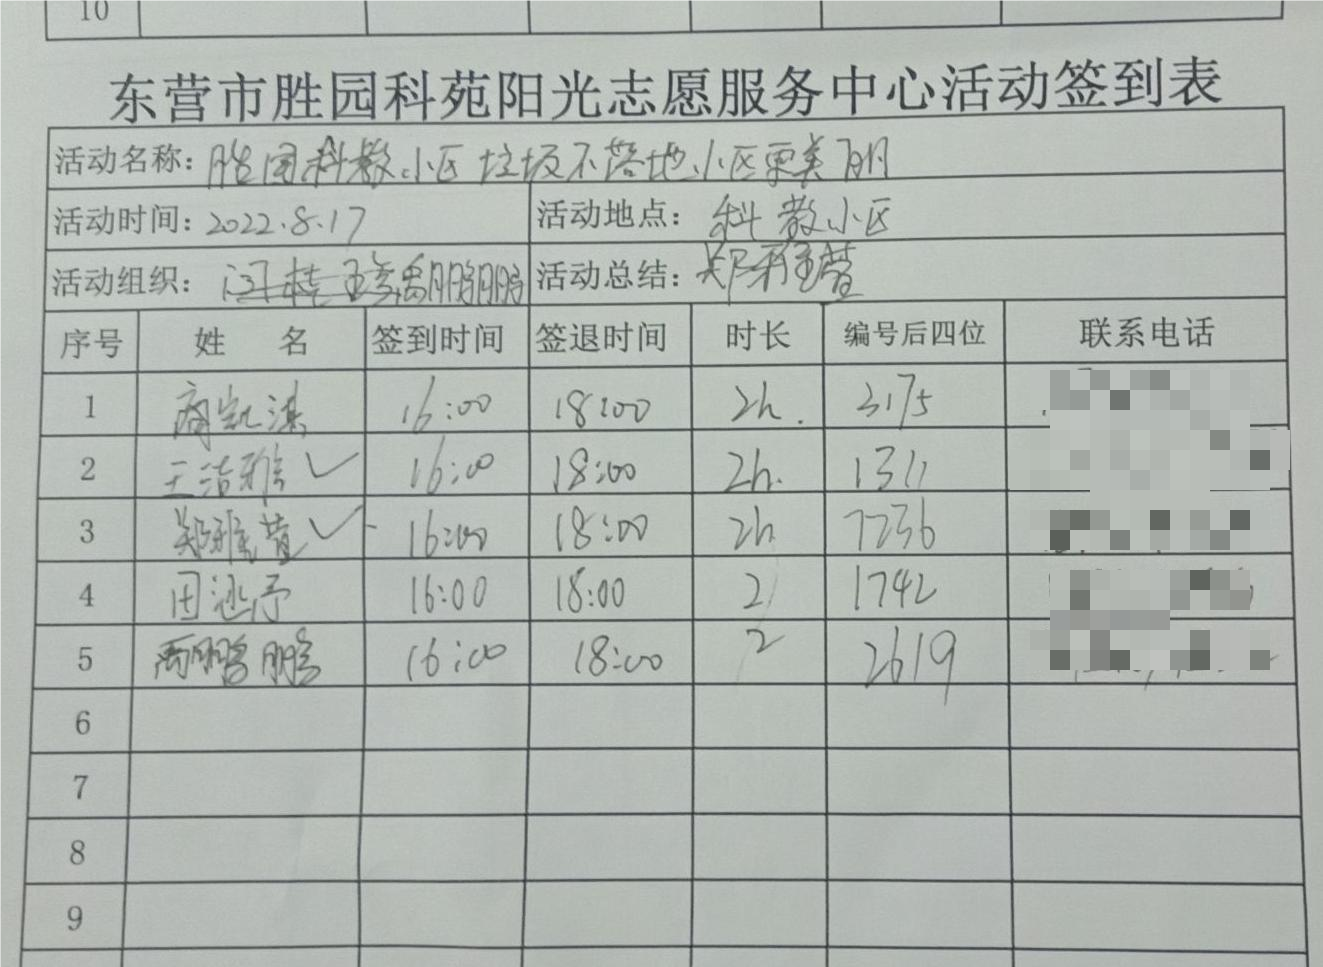 10
东营市胜园科苑阳光志愿服务中心活动签到表
活动名称: 胜园科教小区垃圾不落地小区更美丽
活动时间: 2022.8.17 活动地点: 科教小区
活动组织: 禹鹏鹏 活动总结: 郑雅萱
序号 姓 名 签到时间 签退时间 时长 编号后四位 联系电话
1 16:00 18:00 2h. 3175
2 王洁雅 ✓ 16:00 18:00 2h. 1311
3 郑雅萱 ✓ 16:00 18:00 2h 7236
4 田涵予 16:00 18:00 2 1742
5 禹鹏鹏 16:00 18:00 2 2619
6
7
8
9